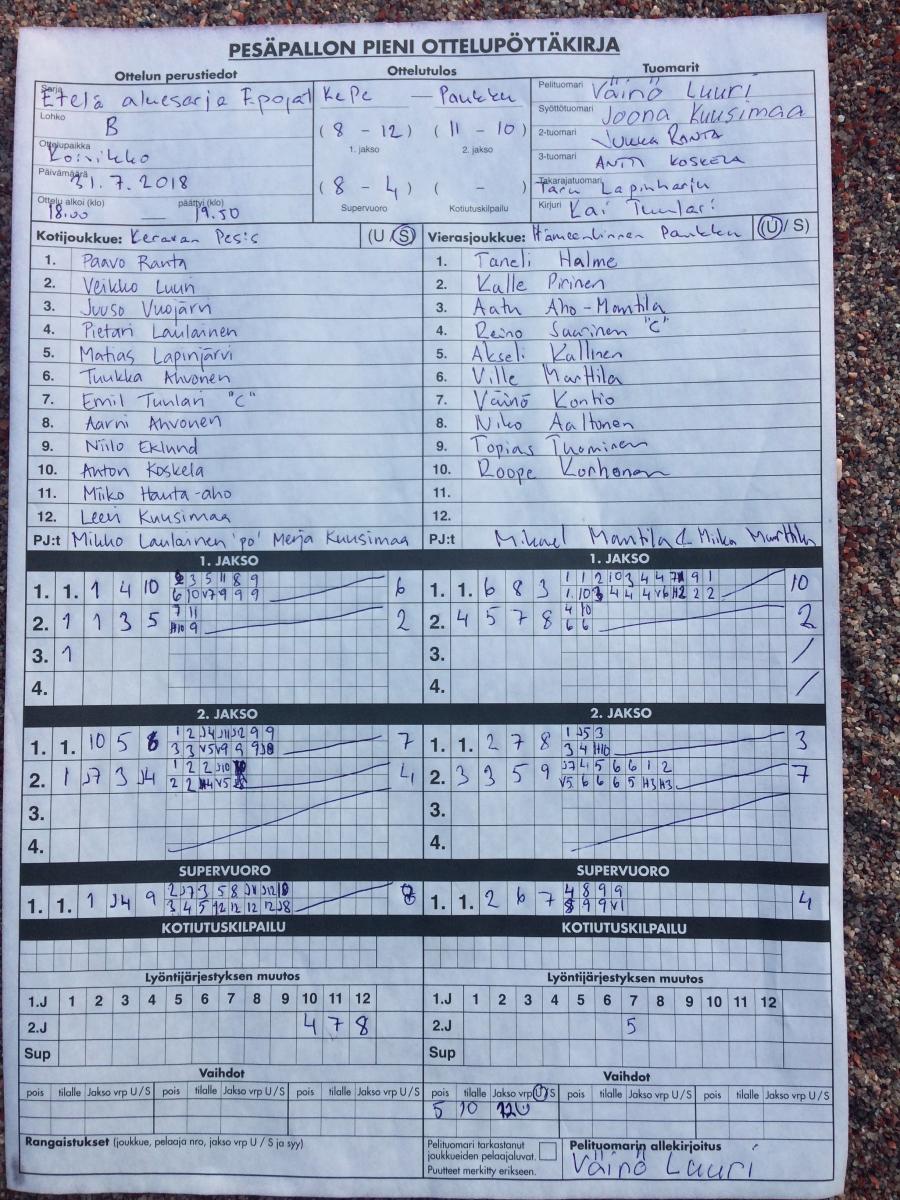 PESÄPALLON PIENI OTTELUPÖYTÄKIRJA
Ottelun perustiedot Ottelutulos Tuomarit
Sarja Etelä aluesarja Epojat
KePe — Pankku
Pelituomari Väinö Luuri
Lohko B
(8 - 12) (11 - 10)
1. jakso 2. jakso
Syöttötuomari Joona Kuusimaa
Ottelupaikka Koivikko
2-tuomari Jukka Ranta
Päivämäärä 31.7.2018
3-tuomari Antti Koskela
(8 - 4) ( - )
Supervuoro Kotiutuskilpailu
Takarajatuomari Taru Lapinharju
Ottelu alkoi (klo) päättyi (klo)
18.00 — 19.50
Kirjuri Kai Tuulari
Kotijoukkue: Keravan Pesis (U/S) Vierasjoukkue: Hämeenlinnan Pankku (U/S)
1. Paavo Ranta 1. Taneli Halme
2. Veikko Luuri 2. Kalle Pirinen
3. Juuso Vuojärvi 3. Aatu Aho-Mantila
4. Pietari Laulainen 4. Reino Saarinen "C"
5. Matias Lapinjärvi 5. Akseli Kallinen
6. Tuukka Ahvonen 6. Ville Marttila
7. Emil Tuulari "C" 7. Väinö Kontio
8. Aarni Ahvonen 8. Niko Aaltonen
9. Niilo Eklund 9. Topias Tuominen
10. Anton Koskela 10. Roope Korhonen
11. Miiko Hauta-aho 11.
12. Leevi Kuusimaa 12.
PJ:t Mikko Laulainen 'po' Merja Kuusimaa PJ:t Mikael Mantila & Miika Marttila
1. JAKSO 1. JAKSO
1. 1. 1 4 10 6 1. 1. 6 8 3 10
2. 1 1 3 5 2 2. 4 5 7 8 2
3. 1 3. /
4. 4. /
2. JAKSO 2. JAKSO
1. 1. 10 5 7 1. 1. 2 7 8 3
2. 1 J7 3 J4 4 2. 3 3 5 9 7
3. 3.
4. 4.
SUPERVUORO SUPERVUORO
1. 1. 1 J4 9 8 1. 1. 2 6 7 4
KOTIUTUSKILPAILU KOTIUTUSKILPAILU
Lyöntijärjestyksen muutos Lyöntijärjestyksen muutos
1.J 1 2 3 4 5 6 7 8 9 10 11 12 1.J 1 2 3 4 5 6 7 8 9 10 11 12
2.J 4 7 8 2.J 5
Sup Sup
Vaihdot Vaihdot
pois tilalle Jakso vrp U/S pois tilalle Jakso vrp U/S pois tilalle Jakso vrp U/S pois tilalle Jakso vrp U/S pois tilalle Jakso vrp U/S pois tilalle Jakso vrp U/S
5 10
Rangaistukset (joukkue, pelaaja nro, jakso vrp U / S ja syy)
Pelituomari tarkastanut
joukkueiden pelaajaluvat.
Puutteet merkitty erikseen.
Pelituomarin allekirjoitus
Väinö Luuri